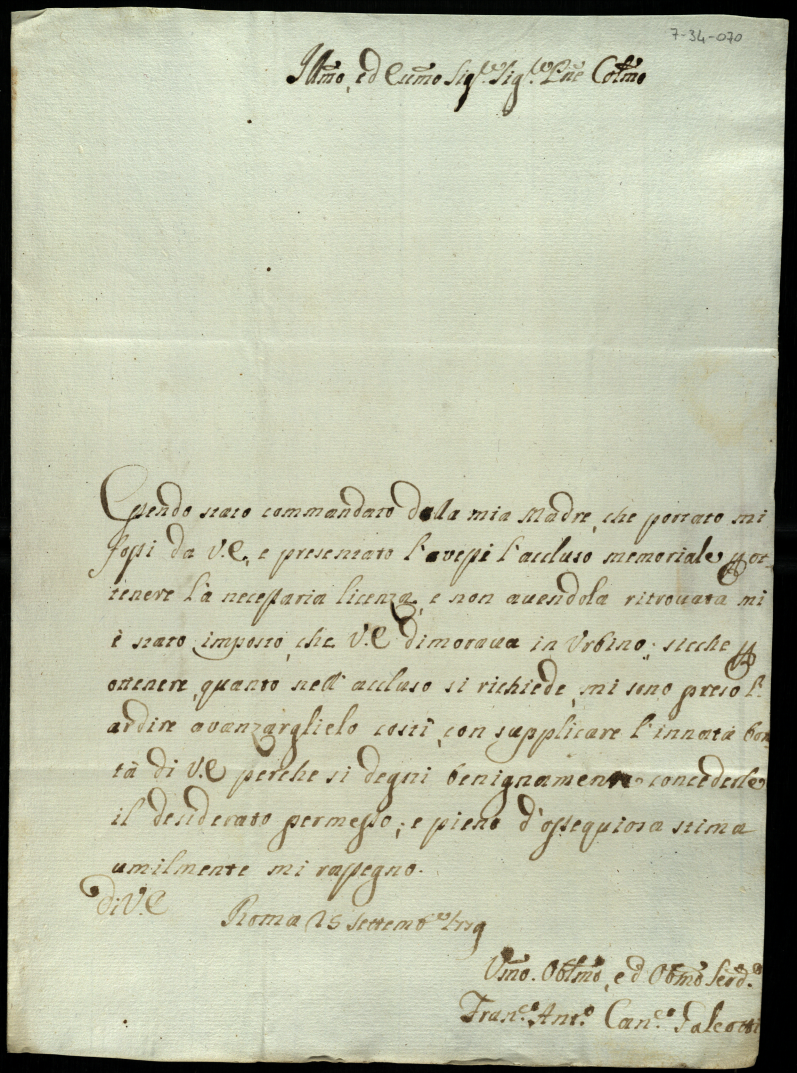 7-34-070
Illmo, ed Eccmo Sigre Sigre Pne Colmo
Essendo stato commandato dala mia Madre, che portato mi
fossi da V.E., e presentato l'avessi l'accluso memoriale p ot-
tenere la necessaria licenza, e non avendola ritrovata mi
è stato imposto, che V.E. dimorava in Urbino; sicche p
ottenere, quanto nell' accluso si richiede, mi sono preso l'
ardire avanzarglielo costì, con supplicare l'innata bon
tà di V.E. perche si degni benignamente concederle
il desiderato permesso; e pieno d'ossequiosa stima
umilmente mi rassegno.
di V.E.
Roma 15 Settembre
Umo. Obblmo, ed Obmo Serd.e
Franc.o Ant.o Can.co Galeotti